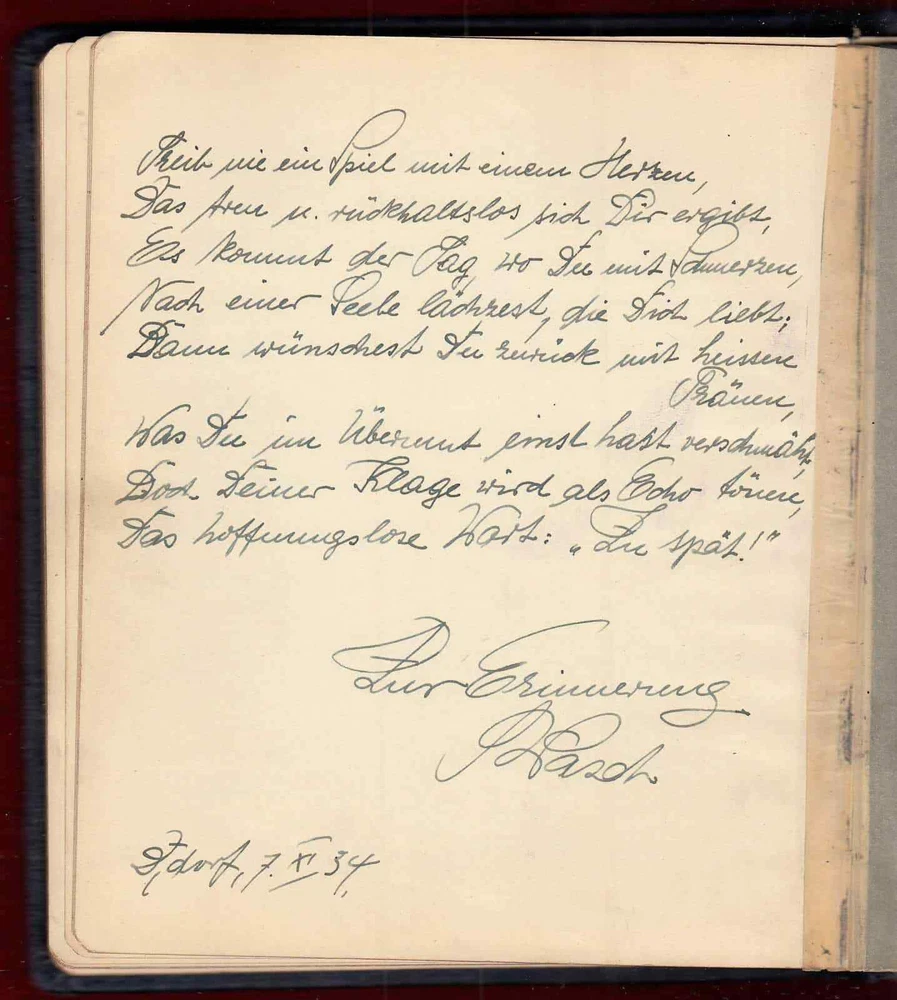 Treib nie ein Spiel mit einem Herzen,
Das treu u. rückhaltslos sich Dir ergibt,
Es kommt der Tag, wo Du mit Schmerzen,
Nach einer Seele lächzest, die Dich liebt;
Dann wünschest Du zurück mit heissen
Tränen,
Was Du im Übermut einst hast verschmäht,
Doch Deiner Klage wird als Echo tönen,
Das hoffnungslose Wort: „Zu spät!"
Zur Erinnerung
D'dorf, 7. XI 34.